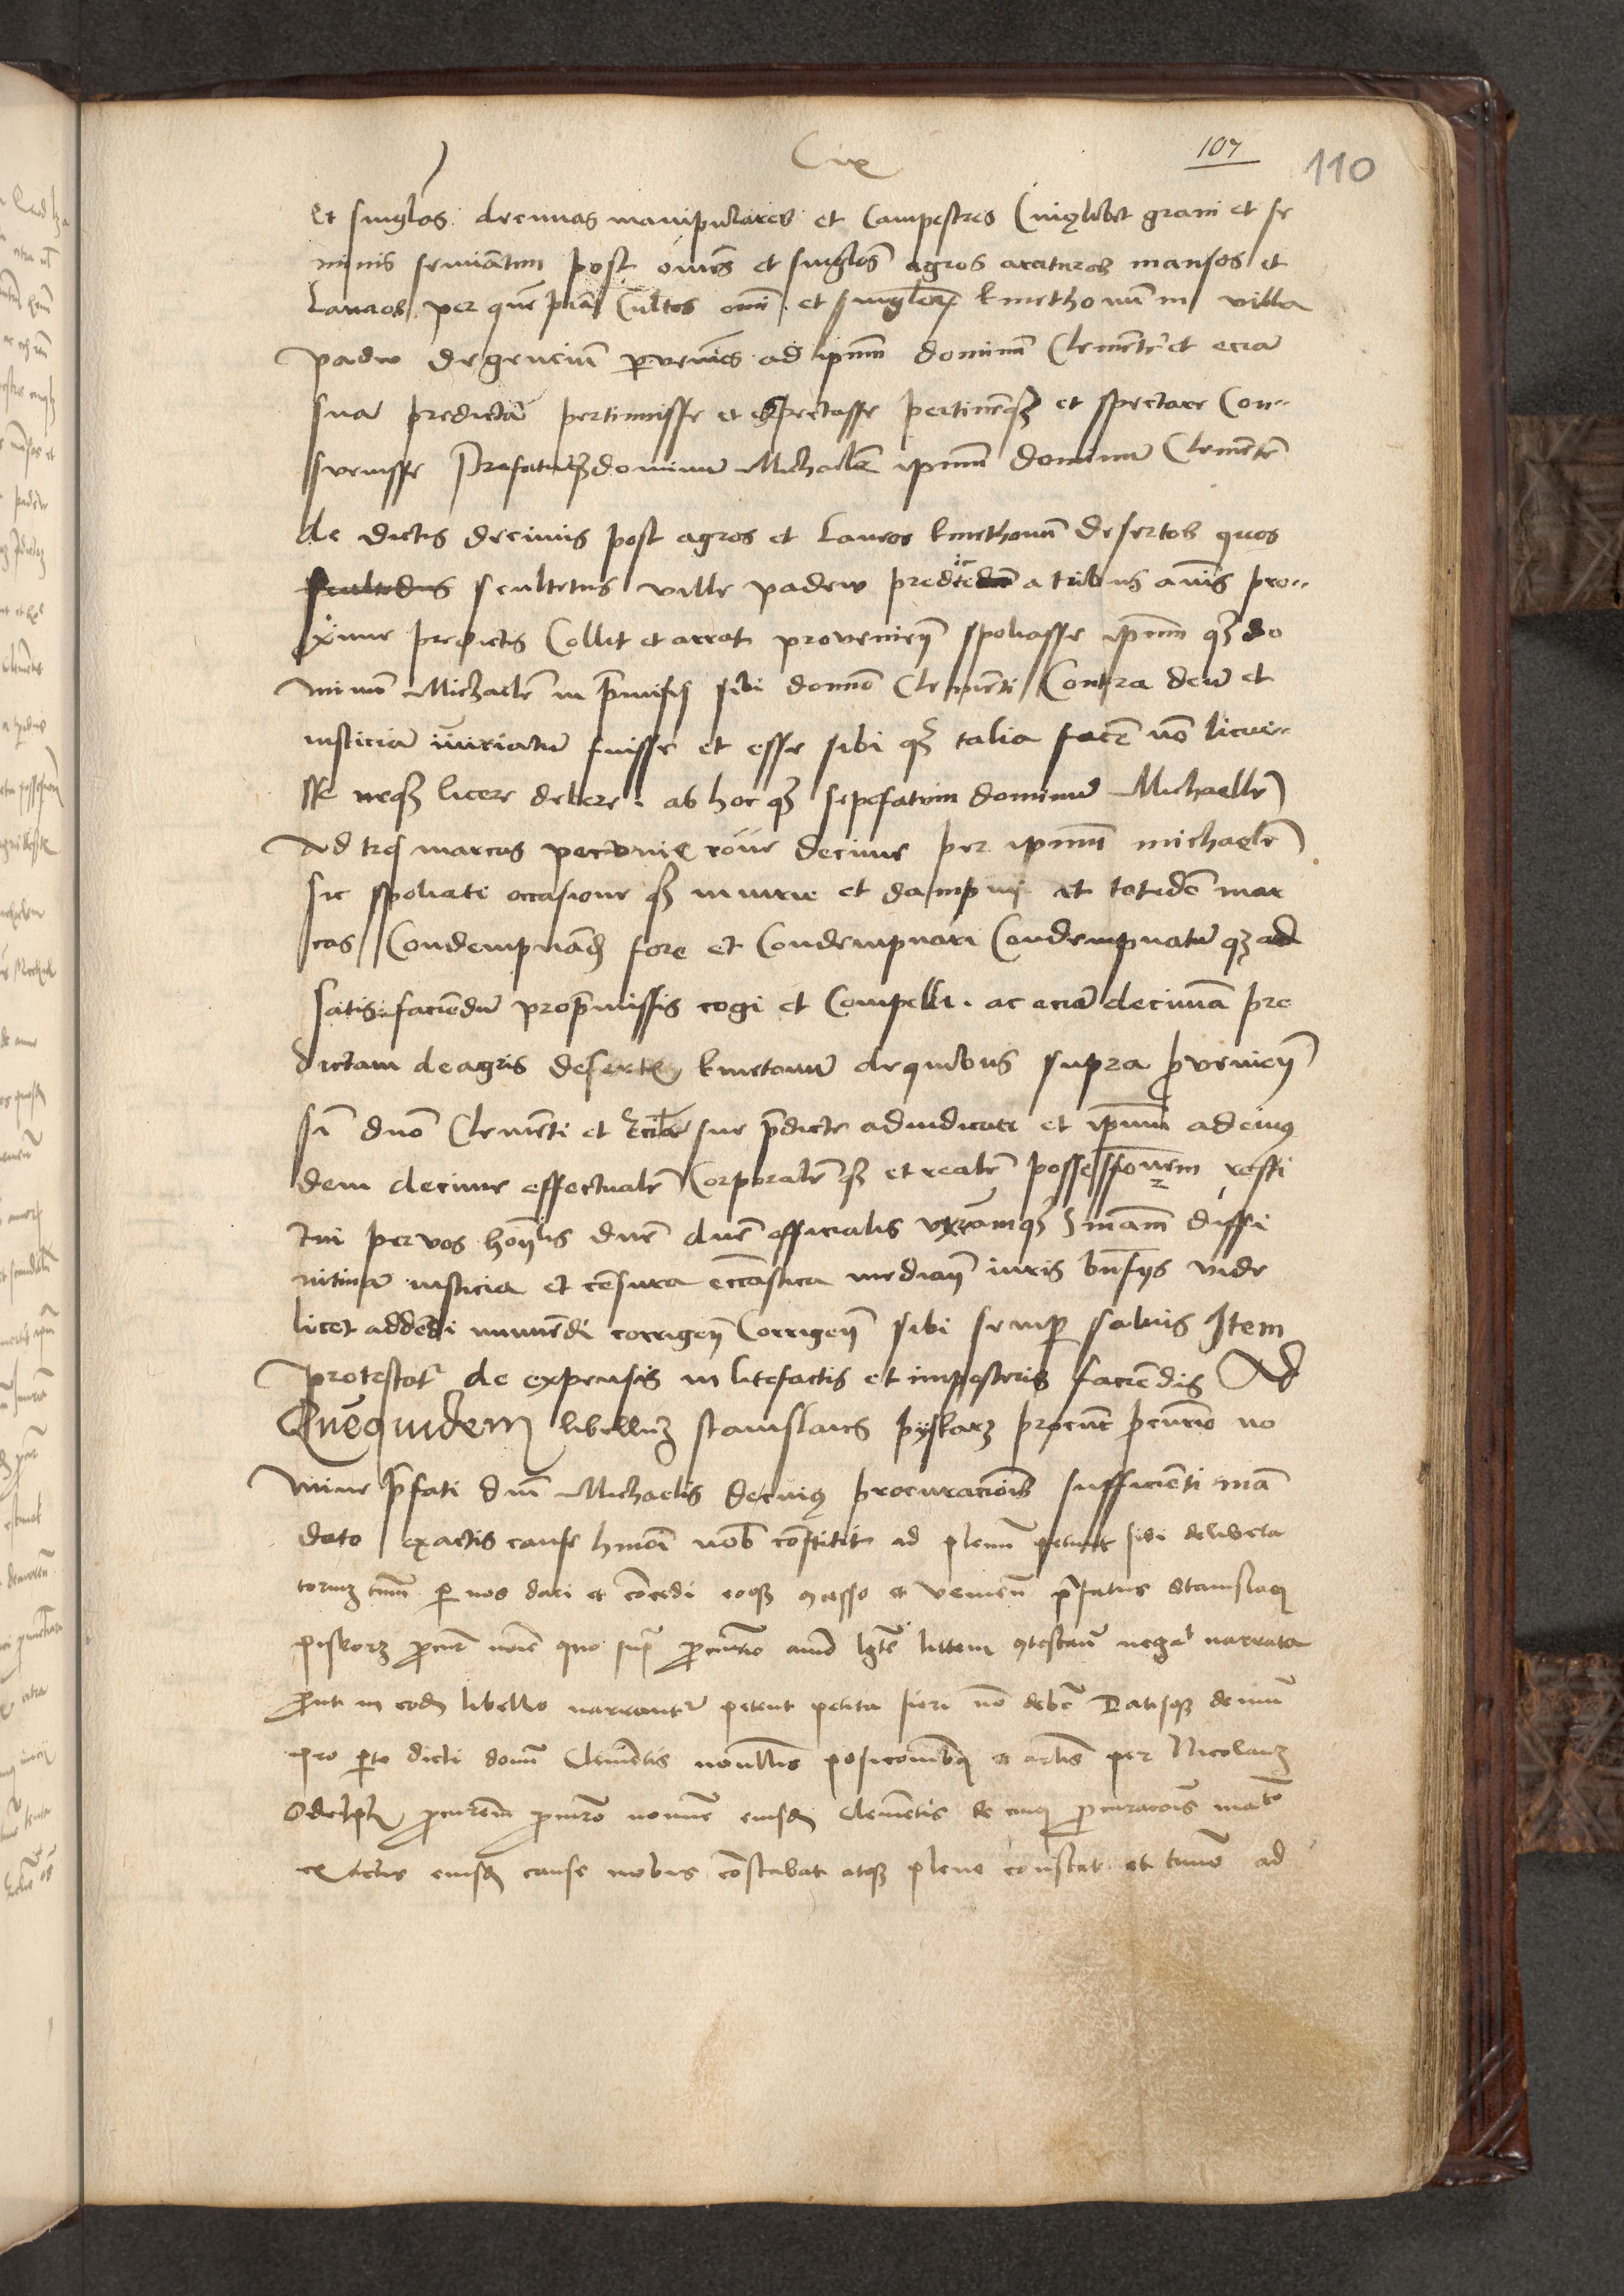 Cix 107 110
Et singlas decimas manipulares et Campestres Cuiuslibet grani et se
minis seminatim post omnes et singlos agros araturas mansos et
Laneos per quempiam Cultos omni et singlorum kmethonum in villa
padew degencium pervenientes ad ipsum dominum Clementem et eccia
sua predicta pertinuisse et spectasse pertinereque et spectare Con-
svevisse Prefatumque dominum Michaelem ipsum dominum Clementem
de dictis decimis post agros et Laneos kmethonum desertos quos
scultetus ville padew predicte a tribus annis pro-
xime predictis Collit et arrat provenien spoliasse ipsum que do
minum Michaelem in premissis sibi domino Clementi Contra deum et
iusticiam iniuriatum fuisse et esse sibi que talia facere non licui-
sse neque licere debere. ab hoc que sepefatum dominum Michaellem
Ad tres marcas pecunie racione decime per ipsum michaelem
sic spoliate occasione que iniurie et dampni et totidem mar
cas Condempnandum fore et Condempnari Condempnatum que ad
satisfaciendum propremissis cogi et Compelli. ac eciam decimam pre
dictam de agris desertis kmetonum de quibus supra provenien
si domino Clementi et Ecclie sue predicte adiudicari et ipsum ad eius
dem decime effectualem Corporalem que et realem possessionem resti
tui per vos honorabilis domine domine officialis vestramque sententiam diffi
nitivam iusticia et censura ecclesiastica median iuris beneficiis vide
licet addendi minuendi corrigen Corrigen sibi semper salvis Item
protestatur de expensis in litefactis et imposteris faciendis Ad
Quequidem libellum stanislaus pyskarz procurator procuratorio no
mine prefati domini Michaelis de cuius procuracionis sufficienti man
dato exactis cause huiusmodi nobis constitit ad plenum petivit sibi delibera
torium terminum per nos dari et concedi eoque concesso et venien prefatus Stanislaus
piskorz procurator nomine quo supra procuratorio animo litem contestandi negavit narrata
prout in eodem libello narrantur petent petita fieri non debere Datisque demum
pro parte dicti domini Clementis nonnullis posicionibus et articulis per Nicolaum
procuratorem procuratorio nomine eiusdem Clementis de cuius procuracionis mandato
exactis eiusdem cause nobis constabat atque plene constat et termino ad